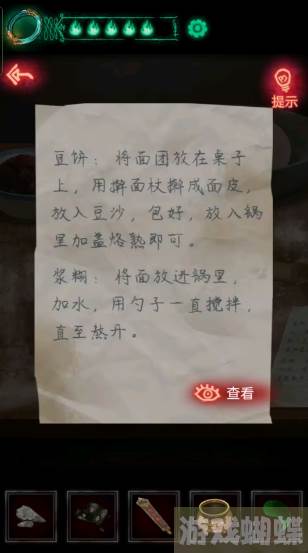 提示
豆饼：将面团放在桌子
上，用擀面杖擀成面皮，
放入豆沙，包好，放入锅
里加盖烙熟即可。
浆糊：将面放进锅里，
加水，用勺子一直搅拌，
直至熬开。
查看
游戏蝴蝶